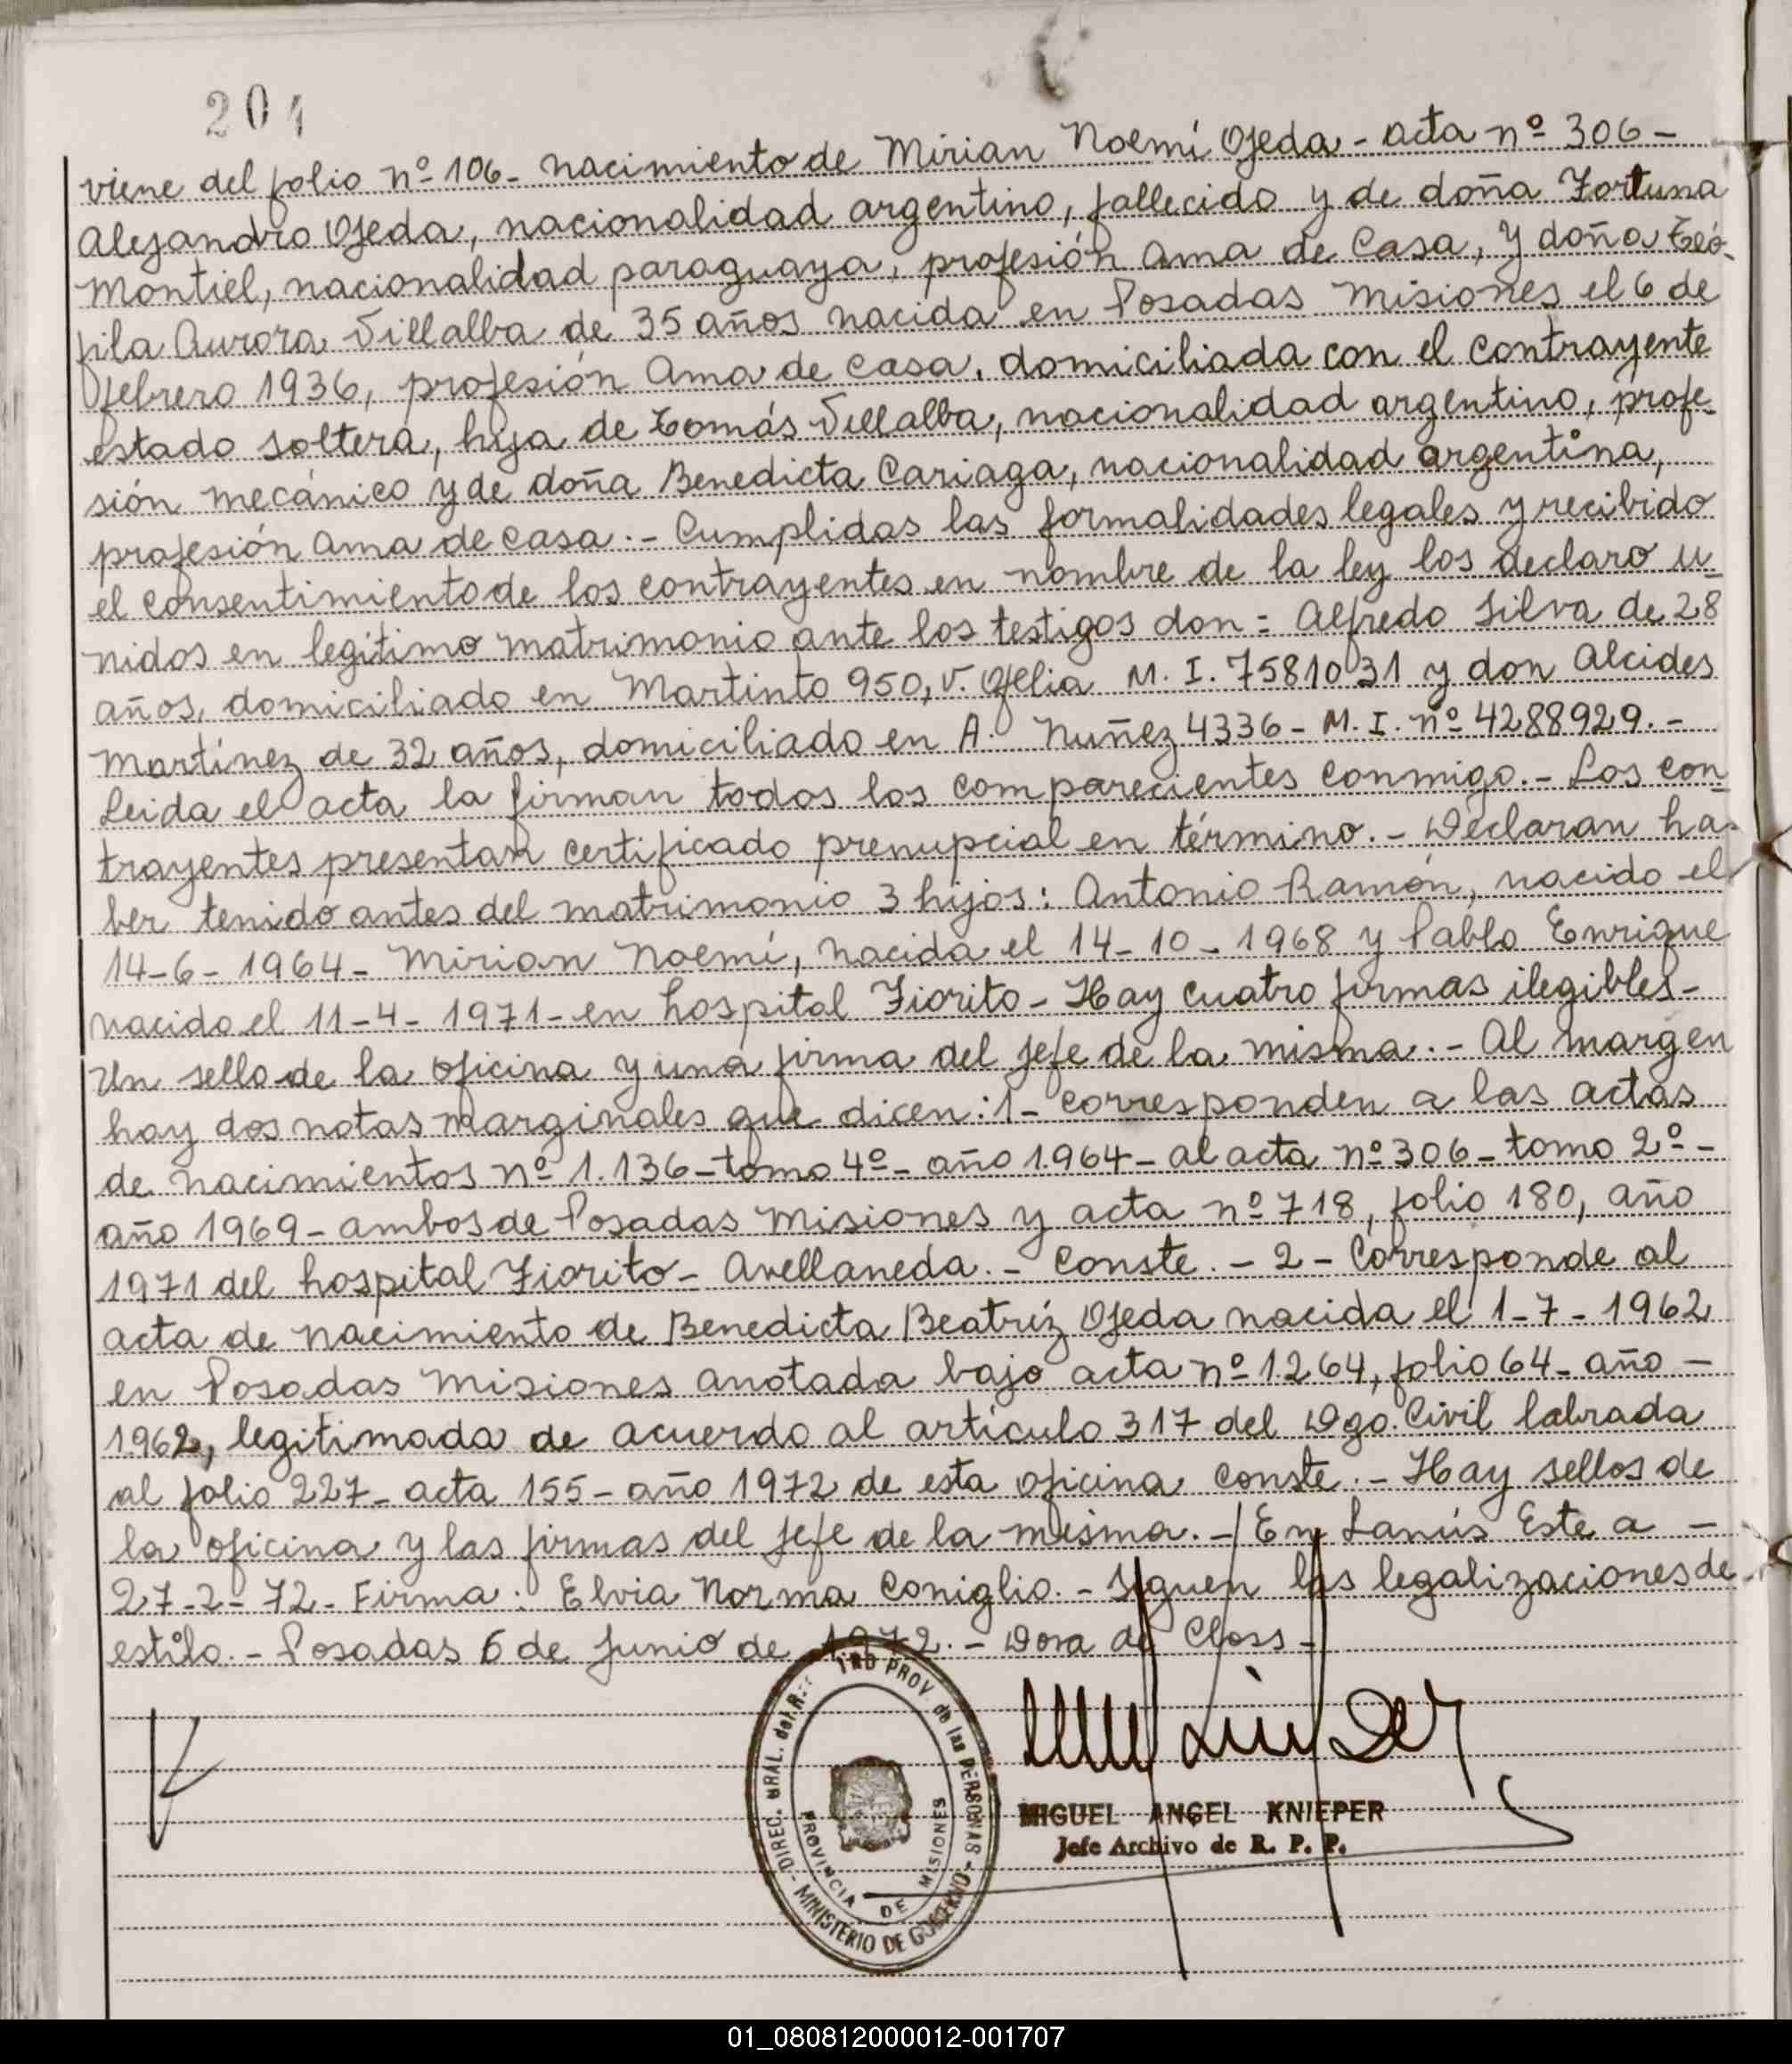 204
viene del folio nº 106- nacimiento de Mirian Noemí Ojeda - acta nº 306 -
Alejandro Ojeda, nacionalidad argentino, fallecido y de doña Fortuna
Montiel, nacionalidad paraguaya, profesión Ama de Casa, y doña Teó-
fila Aurora Villalba de 35 años nacida en Posadas Misiones el 6 de
febrero 1936, profesión Ama de Casa, domiciliada con el contrayente
estado soltera, hija de Tomás Villalba, nacionalidad argentino, profe-
sión mecánico y de doña Benedicta Cariaga, nacionalidad argentina,
profesión Ama de Casa.- Cumplidas las formalidades legales y recibido
el consentimiento de los contrayentes en nombre de la ley los declaro u-
nidos en legítimo matrimonio ante los testigos don = Alfredo Silva de 28
años, domiciliado en Martinto 950, V. Ofelia M. I. 7581031 y don Alcides
Martínez de 32 años, domiciliado en A. Nuñez 4336 - M. I. nº 4288929.-
Leida el acta la firman todos los comparecientes conmigo.- Los con-
trayentes presentan certificado prenupcial en término.- Declaran ha-
ber tenido antes del matrimonio 3 hijos: Antonio Ramón, nacido el
14-6-1964- Mirian Noemí, nacida el 14-10-1968 y Pablo Enrique
nacido el 11-4-1971- en hospital Fiorito - Hay cuatro firmas ilegibles-
Un sello de la oficina y una firma del jefe de la misma.- Al margen
hay dos notas marginales que dicen: 1- Corresponden a las actas
de nacimientos nº 1.136 - tomo 4º - año 1.964 - al acta nº 306 - tomo 2º -
año 1969 - ambos de Posadas Misiones y acta nº 718, folio 180, año
1971 del hospital Fiorito - Avellaneda.- Conste.- 2 - Corresponde al
acta de nacimiento de Benedicta Beatríz Ojeda nacida el 1-7-1962
en Posadas Misiones anotada bajo acta nº 1264, folio 64 - año -
1962, legitimada de acuerdo al artículo 317 del Dgo. Civil labrada
al folio 227 - acta 155 - año 1972 de esta oficina conste.- Hay sellos de
la oficina y las firmas del jefe de la misma.- / En Lanús Este a -
27-2-72- Firma: Elvia Norma Coniglio.- Siguen las legalizaciones de
estilo.- Posadas 6 de Junio de 1972.- Dora de Closs -
PROV. de las PERSONAS
DIREC. GRAL. del R.
PROVINCIA DE MISIONES
MINISTERIO DE GOBIERNO
MIGUEL ANGEL KNIEPER
Jefe Archivo de R. P. P.
01_080812000012-001707